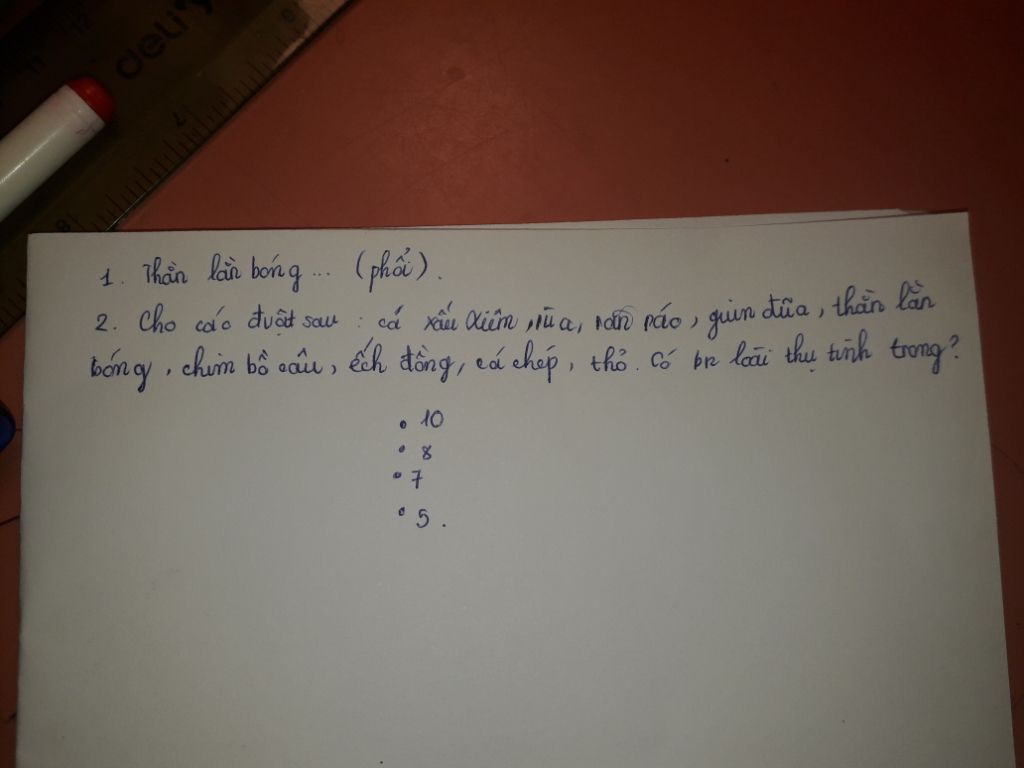 deli
1. Thằn lằn bóng ... (phổi).
2. Cho các đvật sau : cá xấu Xiêm, rùa, rắn ráo, giun đũa, thằn lằn
bóng, chim bồ câu, ếch đồng, cá chép, thỏ. Có bn loài thụ tinh trong?
• 10
• 8
• 7
• 5.